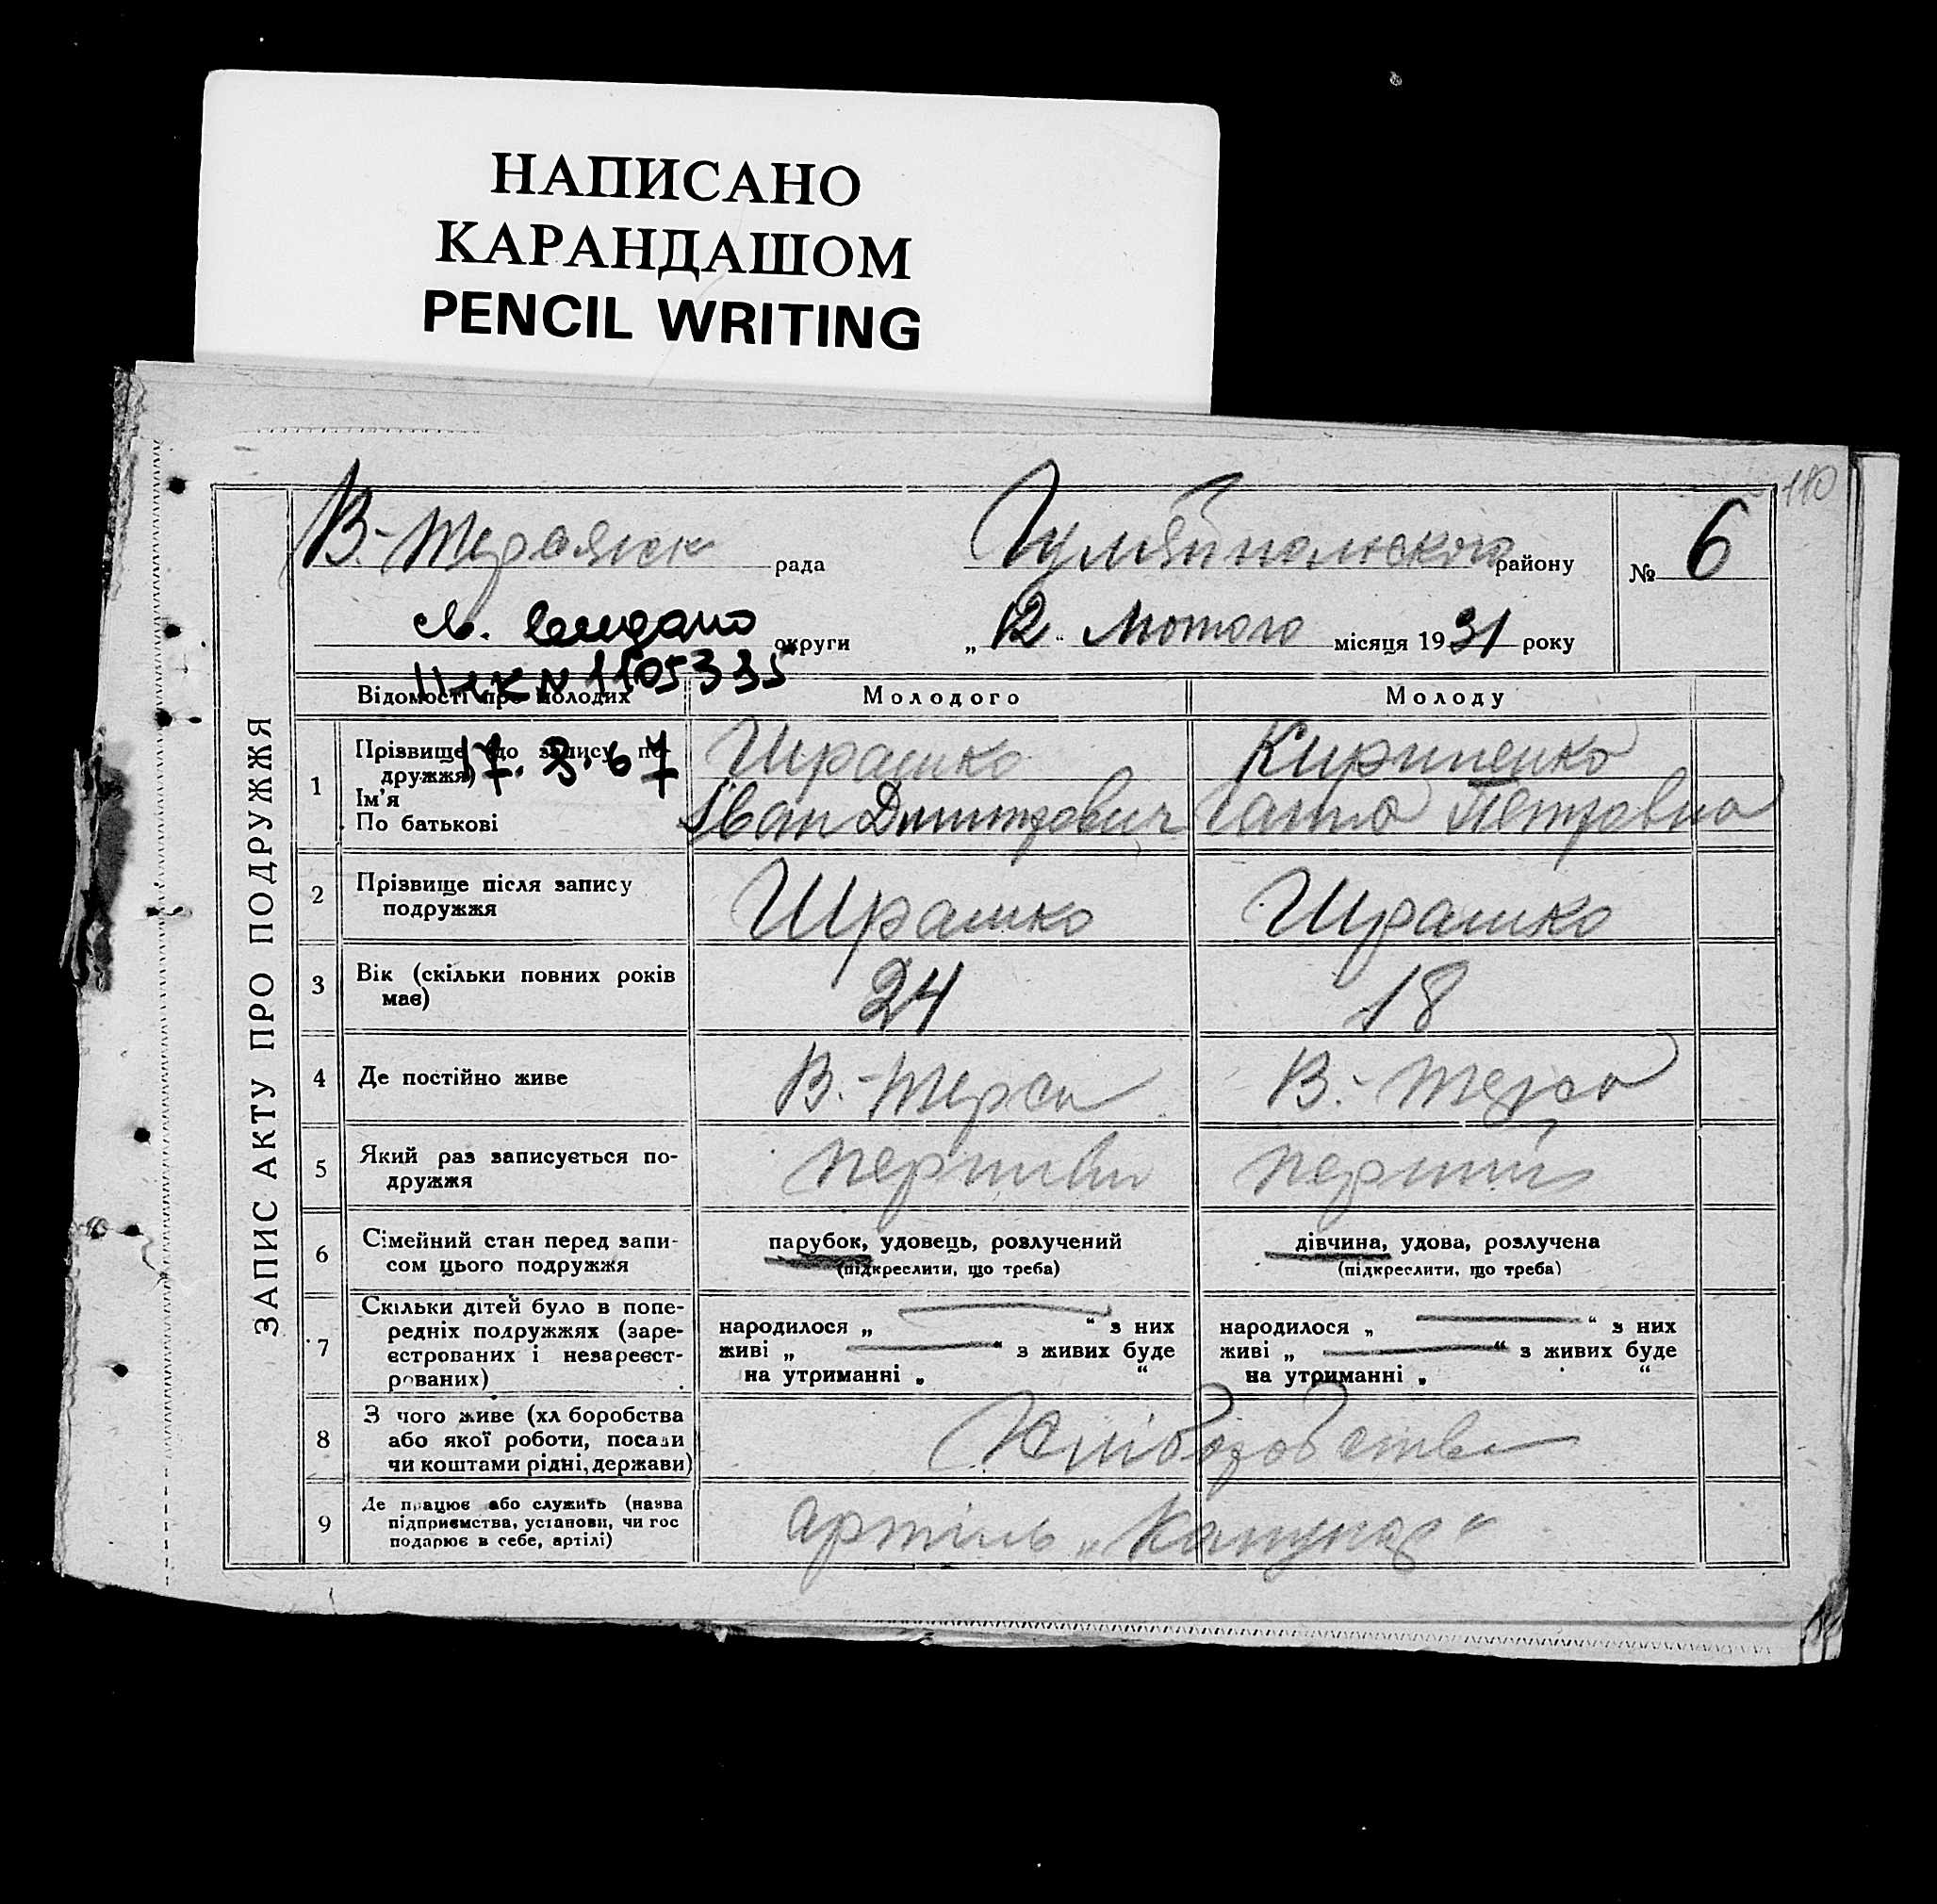 НАПИСАНО
КАРАНДАШОМ
PENCIL WRITING
110
В.-Терсянск рада
Гуляйпольського району
№ 6
св. видано округи
„ 12 “ Лютого місяця 1931 року
№ 1105335
17. 3. 67
ЗАПИС АКТУ ПРО ПОДРУЖЖЯ
Відомості про молодих Молодого Молоду
1 Прізвище (до запису подружжя) Шрамко Кириченко
Ім'я
По батькові Іван Дмитрович Ганна Петровна
2 Прізвище після запису
подружжя Шрамко Шрамко
3 Вік (скільки повних років
має) 24 18
4 Де постійно живе В.-Терса В.-Терса
5 Який раз записується по-
дружжя первий перший
6 Сімейний стан перед запи-
сом цього подружжя
парубок, удовець, розлучений
(підкреслити, що треба)
дівчина, удова, розлучена
(підкреслити, що треба)
7 Скільки дітей було в попе-
редніх подружжях (заре-
єстрованих і незареєст-
рованих)
народилося „ “ з них
живі „ “ з живих буде
на утриманні „ “
народилося „ “ з них
живі „ “ з живих буде
на утриманні „ “
8 З чого живе (хліборобства
або якої роботи, посади
чи коштами рідні, держави)
Хліборобства
9 Де працює або служить (назва
підприємства, установи, чи гос
подарює в себе, артілі)
артіль